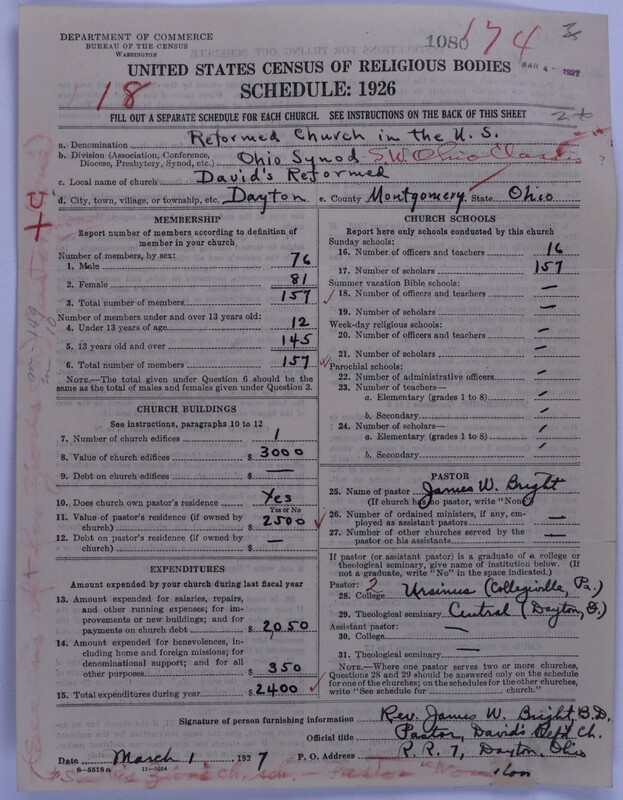 DEPARTMENT OF COMMERCE
BUREAU OF THE CENSUS
WASHINGTON
1080
174
MAR 4 - 1927
18
UNITED STATES CENSUS OF RELIGIOUS BODIES
SCHEDULE: 1926
FILL OUT A SEPARATE SCHEDULE FOR EACH CHURCH. SEE INSTRUCTIONS ON THE BACK OF THIS SHEET
a. Denomination Reformed Church in the U.S.
b. Division (Association, Conference, Diocese, Presbytery, Synod, etc.) Ohio Synod S.W. Ohio Classis ?
c. Local name of church David's Reformed
d. City, town, village, or township, etc. Dayton e. County Montgomery State Ohio
MEMBERSHIP
Report number of members according to definition of
member in your church
Number of members, by sex:
1. Male 76
2. Female 81
3. Total number of members 157
Number of members under and over 13 years old:
4. Under 13 years of age 12
5. 13 years old and over 145
6. Total number of members 157
NOTE.—The total given under Question 6 should be the
same as the total of males and females given under Question 3.
CHURCH BUILDINGS
See instructions, paragraphs 10 to 12
7. Number of church edifices 1
8. Value of church edifices $ 3000
9. Debt on church edifices $ —
10. Does church own pastor's residence Yes
Yes or No
11. Value of pastor's residence (if owned by
church) $ 2500
12. Debt on pastor's residence (if owned by
church) $ —
EXPENDITURES
Amount expended by your church during last fiscal year
13. Amount expended for salaries, repairs,
and other running expenses; for im-
provements or new buildings; and for
payments on church debt $ 2,050
14. Amount expended for benevolences, in-
cluding home and foreign missions; for
denominational support; and for all
other purposes $ 350
15. Total expenditures during year $ 2400
CHURCH SCHOOLS
Report here only schools conducted by this church
Sunday schools:
16. Number of officers and teachers 16
17. Number of scholars 157
Summer vacation Bible schools:
18. Number of officers and teachers —
19. Number of scholars —
Week-day religious schools:
20. Number of officers and teachers —
21. Number of scholars —
Parochial schools:
22. Number of administrative officers —
23. Number of teachers—
a. Elementary (grades 1 to 8) —
b. Secondary —
24. Number of scholars—
a. Elementary (grades 1 to 8) —
b. Secondary —
PASTOR
25. Name of pastor James W. Bright
(If church has no pastor, write "None")
26. Number of ordained ministers, if any, em-
ployed as assistant pastors —
27. Number of other churches served by the
pastor or his assistants —
If pastor (or assistant pastor) is a graduate of a college or
theological seminary, give name of institution below. (If
not a graduate, write "No" in the space indicated.)
Pastor: 2
28. College Ursinus (Collegeville, Pa.)
29. Theological seminary Central (Dayton, O.)
Assistant pastor:
30. College —
31. Theological seminary —
NOTE.—Where one pastor serves two or more churches,
Questions 28 and 29 should be answered only on the schedule
for one of the churches; on the schedules for the other churches,
write "See schedule for church."
Signature of person furnishing information Rev. James W. Bright, B.D.
Official title Pastor, David's Ref'd Ch.
Date March 1, 1927 P. O. Address R. R. 7, Dayton, Ohio
8-5518a 11-9054